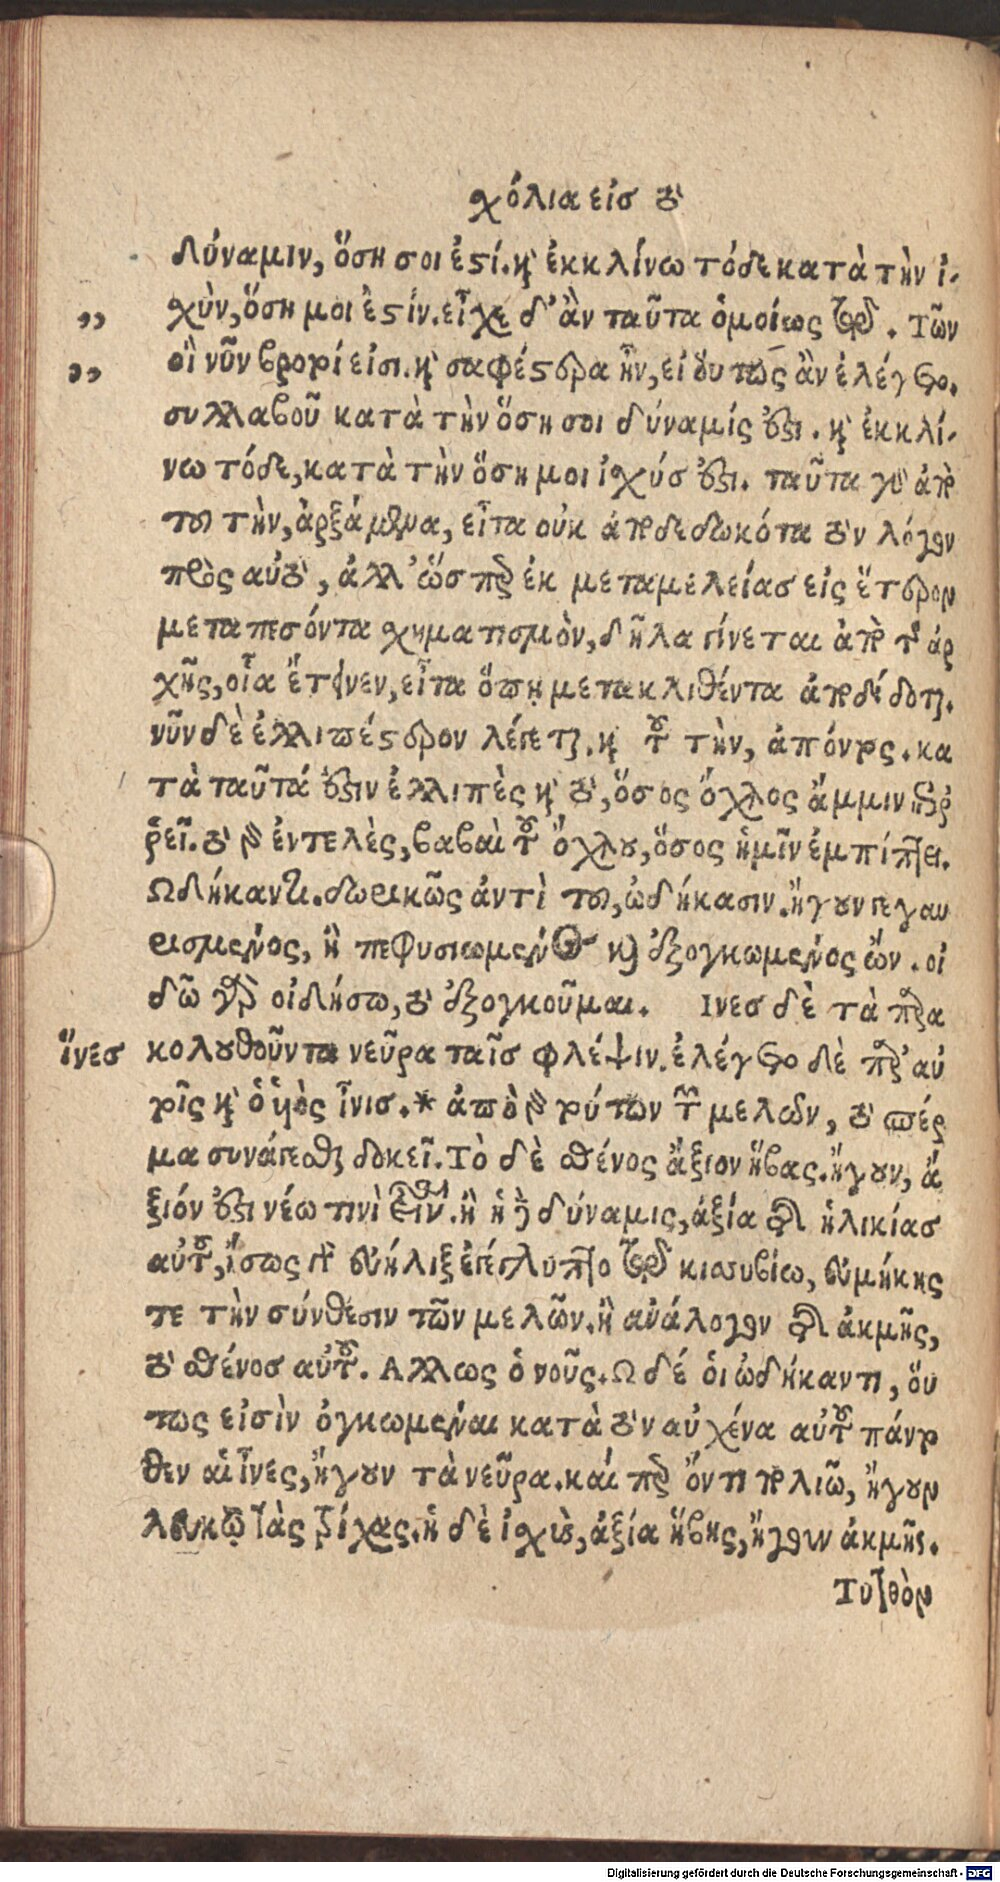 χόλια εἰσ τὸ
δύναμιν, ὅση σοι ἐστί. καὶ ἐκκλίνω τόδε κατὰ τὴν ἰ-
χὺν, ὅση μοι ἐστίν. εἶχε δ' ἂν ταῦτα ὁμοίως τῷ. Τῶν
οἳ νῦν βροτοί εἰσι. καὶ σαφέστερα ἦν, εἰ οὕτως ἂν ἐλέγετο.
συλλαβοῦ κατὰ τὴν ὅση σοι δύναμίς ἐστι. καὶ ἐκκλί-
νω τόδε, κατὰ τὴν ὅση μοι ἰχύσ ἐστι. ταῦτα γὰρ ἀπὸ
τοῦ τὴν, ἀρξάμενα, εἶτα οὐκ ἀποδεδωκότα τὸν λόγον
πρὸς αὐτὸ, ἀλλ' ὥσπερ ἐκ μεταμελείασ εἰς ἕτερον
μεταπεσόντα χηματισμὸν, δῆλα γίνεται ἀπὸ τῆς ἀρ
χῆς, οἷα ἔτεινεν, εἶτα ὅπη μετακλιθέντα ἀποδέδοται.
νῦν δὲ ἐλλιπέστερον λέγεται. καὶ τοῦ τὴν, ἀπόντος. κα
τὰ ταῦτά ἐστιν ἐλλιπὲς καὶ τὸ, ὅσος ὄχλος ἄμμιν ἐπιῤ
ῥεῖ. τὸ γὰρ ἐντελὲς, βαβαὶ τοῦ ὄχλου, ὅσος ἡμῖν ἐμπίπτει.
Ωδήκαντι. δωρικῶς ἀντὶ τοῦ, ὠδήκασιν. ἤγουν γεγαυ
ρισμένος, ἢ πεφυσιωμένος καὶ ἐξογκωμένος ὤν. οἰ
δῶ γὰρ οἰδήσω, τὸ ἐξογκοῦμαι. Ινεσ δὲ τὰ παρα
ἵνεσ κολουθοῦντα νεῦρα ταῖσ φλέψιν. ἐλέγετο δὲ παρ' αὐ
τοῖς καὶ ὁ υἱὸς ἶνισ. * ἀπὸ γὰρ τούτων τῶν μελῶν, τὸ σπέρ
μα συνάγεσθαι δοκεῖ. Τὸ δὲ σθένος ἄξιον ἥβας. ἤγουν, ἄ
ξιόν ἐστι νέω τινὶ ἐστιν. ἢ ἡ δύναμις, ἀξία τῆς ἡλικίασ
αὐτοῦ, ἴσως γὰρ εὐήλιξ ἐγέγλυπτο τῷ κισσυβίω, εὐμήκης
τε τὴν σύνθεσιν τῶν μελῶν. ἢ ἀνάλογον τῆς ἀκμῆς,
τὸ σθένοσ αὐτοῦ. Αλλως ὁ νοῦς. Ωδέ οἱ ὠδήκαντι, οὕ
τως εἰσὶν ὀγκωμέναι κατὰ τὸν αὐχένα αὐτοῦ πάντο
θεν αἱ ἶνες, ἤγουν τὰ νεῦρα. καίπερ ὄντι πολιῶ, ἤγουν
λευκῷ τὰς τρίχας. ἡ δὲ ἰχὺς, ἀξία ἥβης, ἤγουν ἀκμῆς.
Τυτθὸν
Digitalisierung gefördert durch die Deutsche Forschungsgemeinschaft - DFG